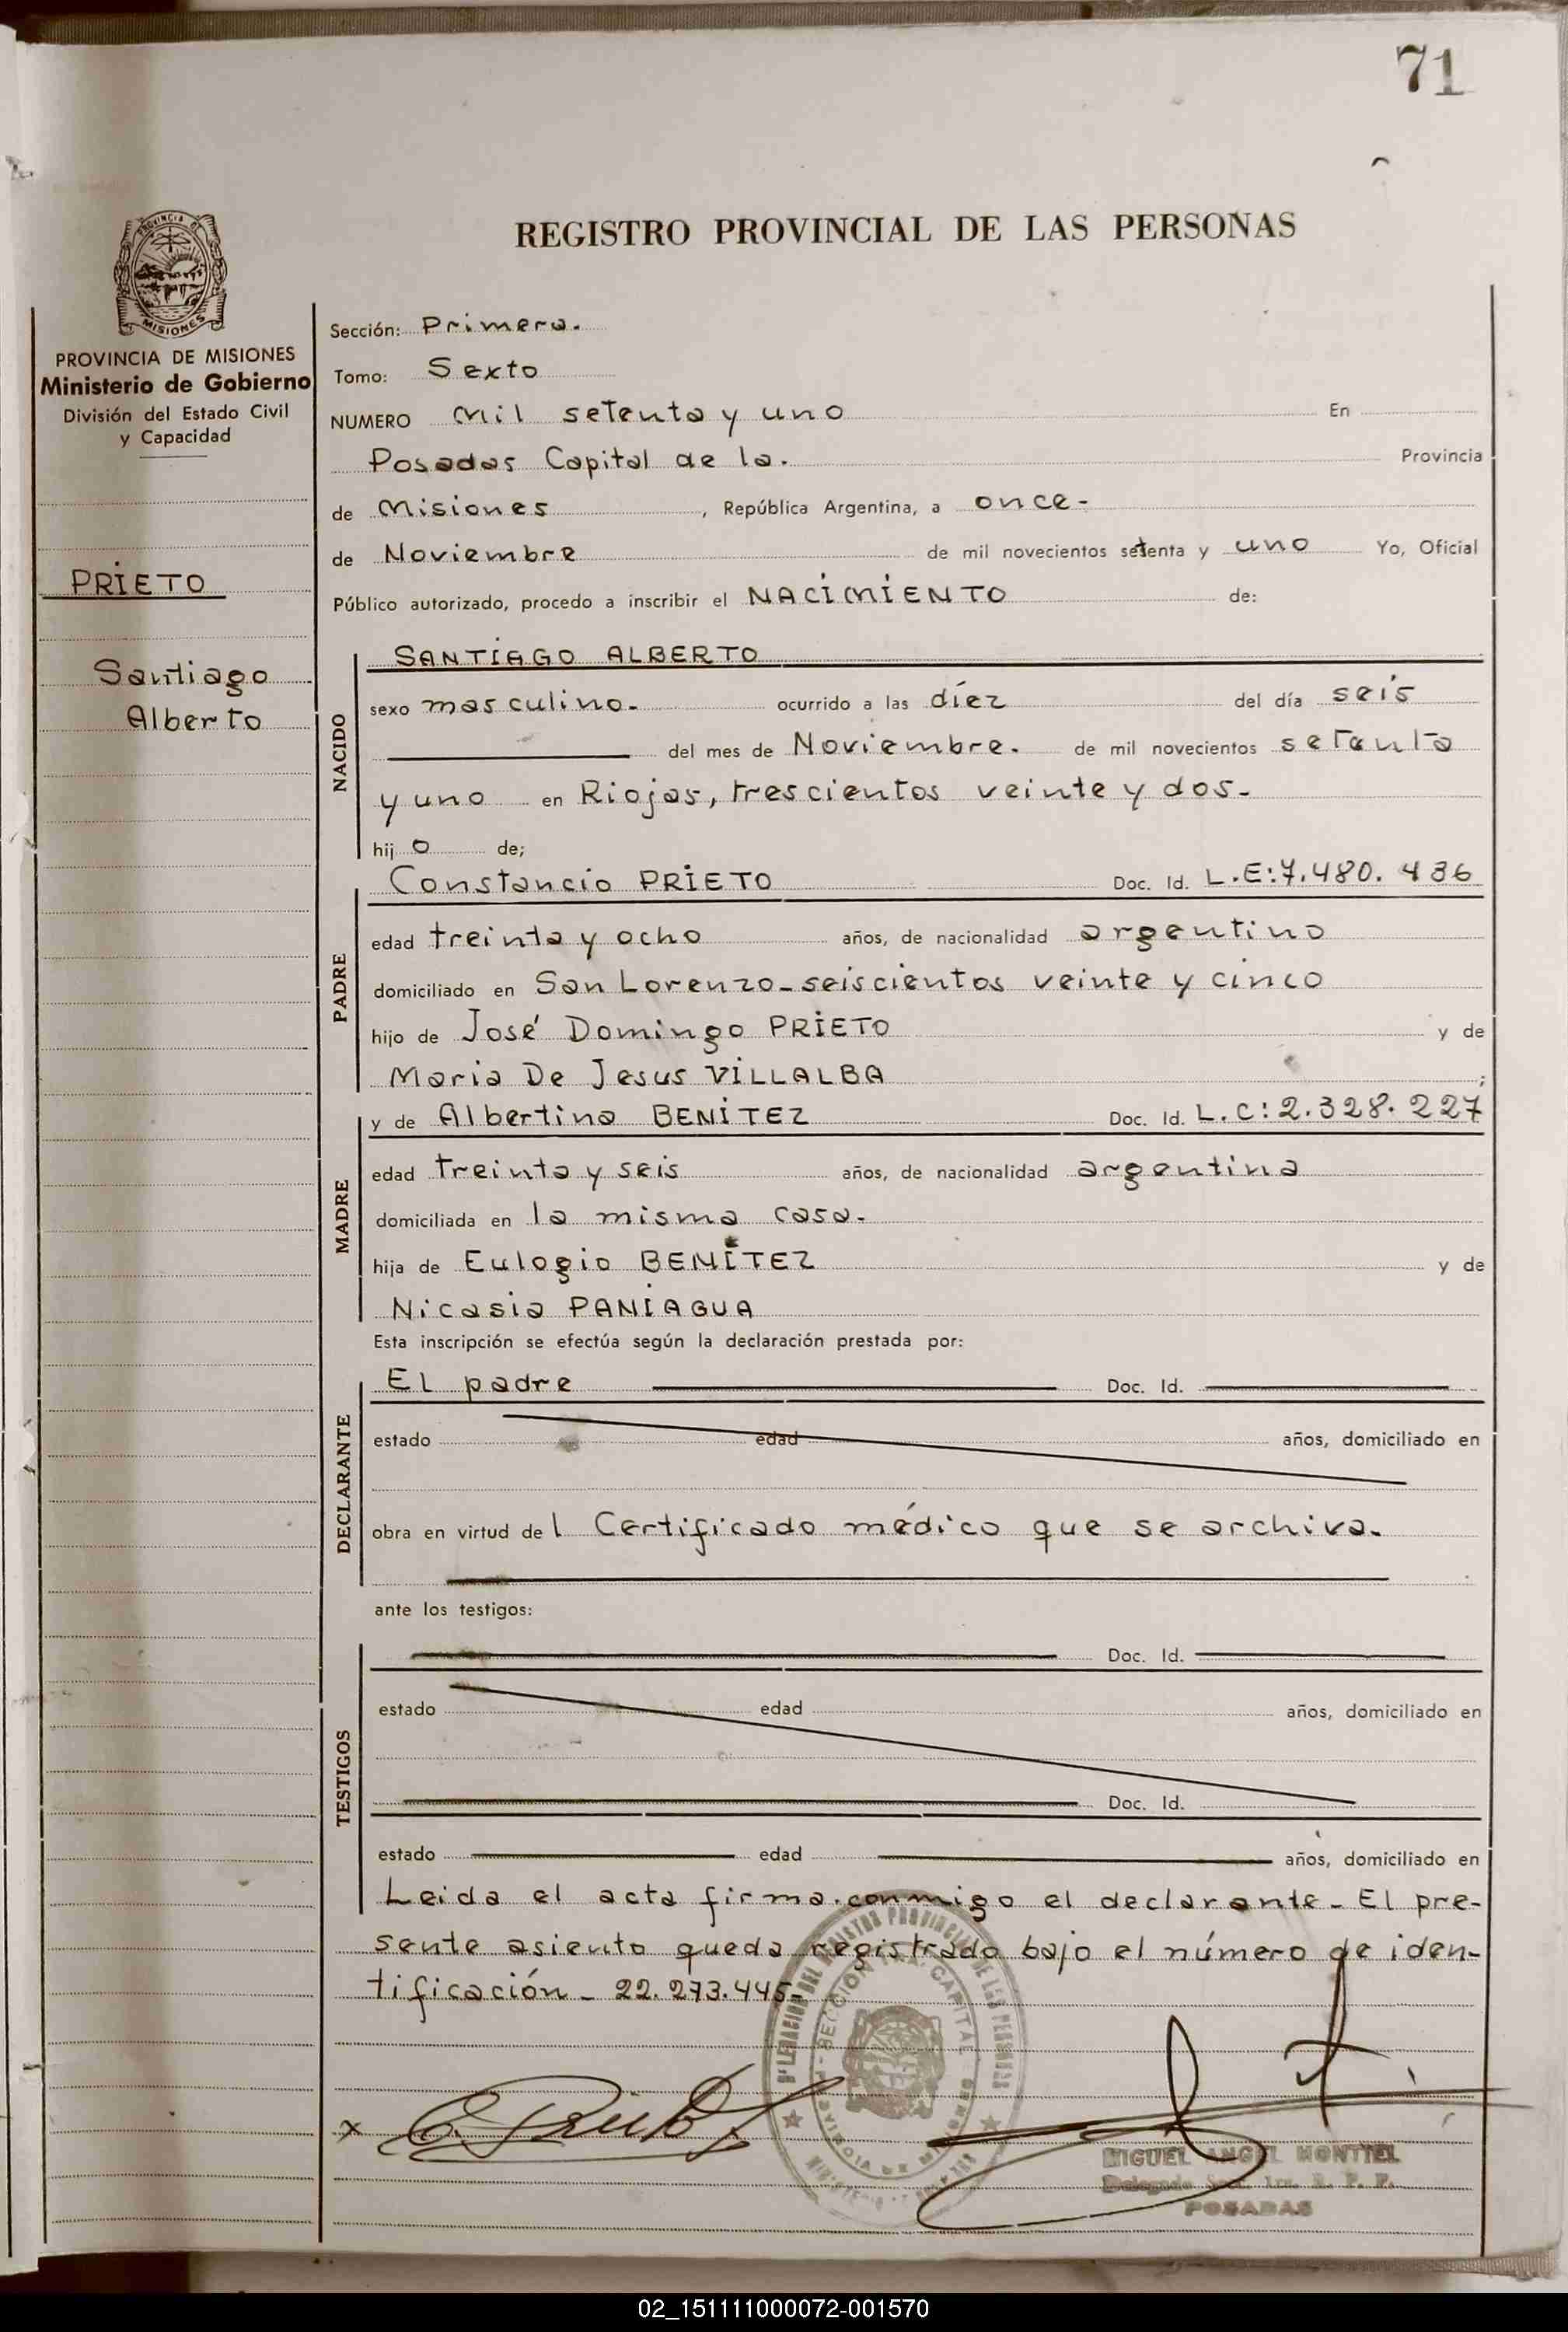 71
REGISTRO PROVINCIAL DE LAS PERSONAS
PROVINCIA DE
MISIONES
PROVINCIA DE MISIONES
Ministerio de Gobierno
División del Estado Civil
y Capacidad
PRIETO
Santiago
Alberto
Sección: Primera.
Tomo: Sexto
NUMERO Mil setenta y uno En
Posadas Capital de la. Provincia
de Misiones, República Argentina, a once-
de Noviembre de mil novecientos setenta y uno Yo, Oficial
Público autorizado, procedo a inscribir el NACIMIENTO de:
NACIDO
SANTIAGO ALBERTO
sexo masculino. ocurrido a las díez del día seis
del mes de Noviembre. de mil novecientos setenta
y uno en Riojas, trescientos veinte y dos-
hijo de;
PADRE
Constancio PRIETO Doc. Id. L.E:7.480.436
edad treinta y ocho años, de nacionalidad argentino
domiciliado en San Lorenzo-seiscientos veinte y cinco
hijo de José Domingo PRIETO y de
Maria De Jesus VILLALBA;
MADRE
y de Albertina BENITEZ Doc. Id. L.C:2.328.227
edad treinta y seis años, de nacionalidad argentina
domiciliada en la misma casa.
hija de Eulogio BENÍTEZ y de
Nicasia PANIAGUA
Esta inscripción se efectúa según la declaración prestada por:
DECLARANTE
El padre Doc. Id.
estado edad años, domiciliado en
obra en virtud del Certificado médico que se archiva.
ante los testigos:
TESTIGOS
Doc. Id.
estado edad años, domiciliado en
Doc. Id.
estado edad años, domiciliado en
Leida el acta firma.conmigo el declarante-El pre-
sente asiento queda registrado bajo el número de iden-
tificación-22.273.445-
x C. Prieto
MIGUEL ANGEL MONTIEL
Delegado Secc. 1ra. R. P. P.
POSADAS
02_151111000072-001570